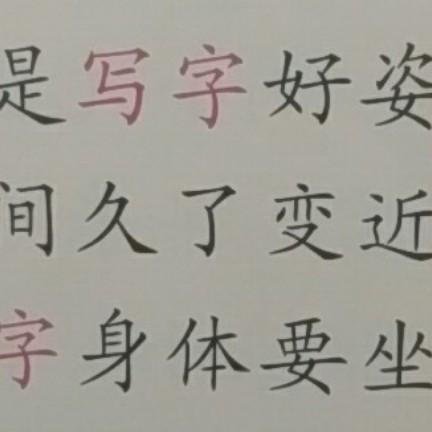 是写字好姿
间久了变近
字身体要坐